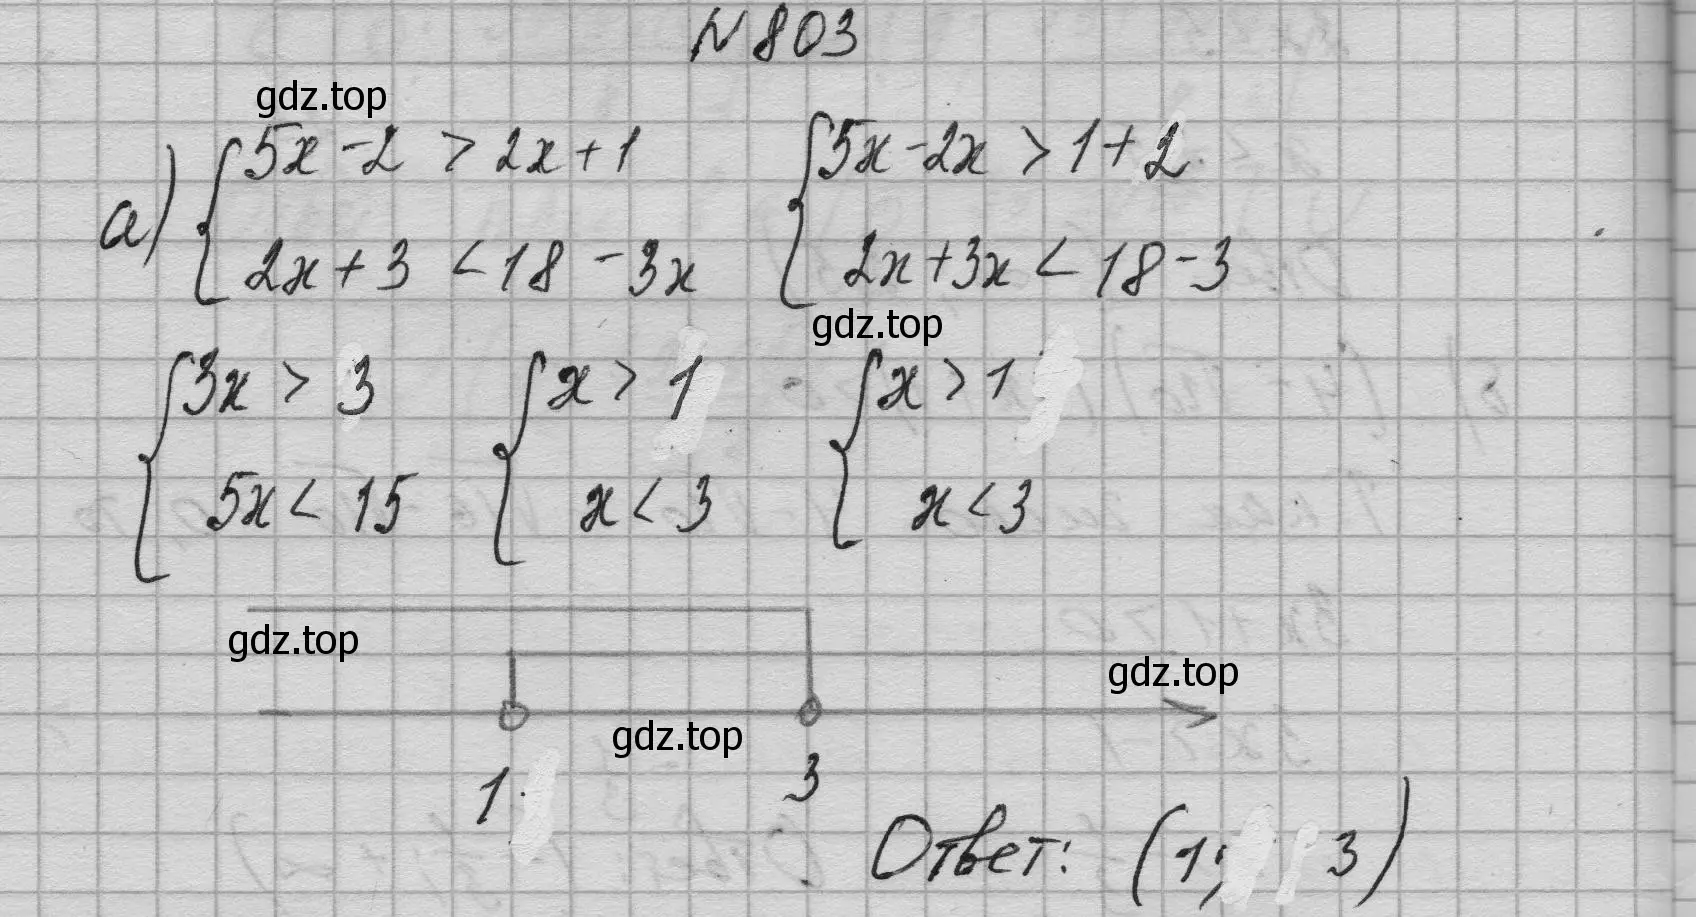 N 803
gdz.top
а) { 5x - 2 > 2x + 1 { 5x - 2x > 1 + 2
2x + 3 < 18 - 3x 2x + 3x < 18 - 3
gdz.top
{ 3x > 3 { x > 1 { x > 1
5x < 15 x < 3 x < 3
gdz.top
gdz.top
gdz.top
1 3
Ответ: (1; 3)